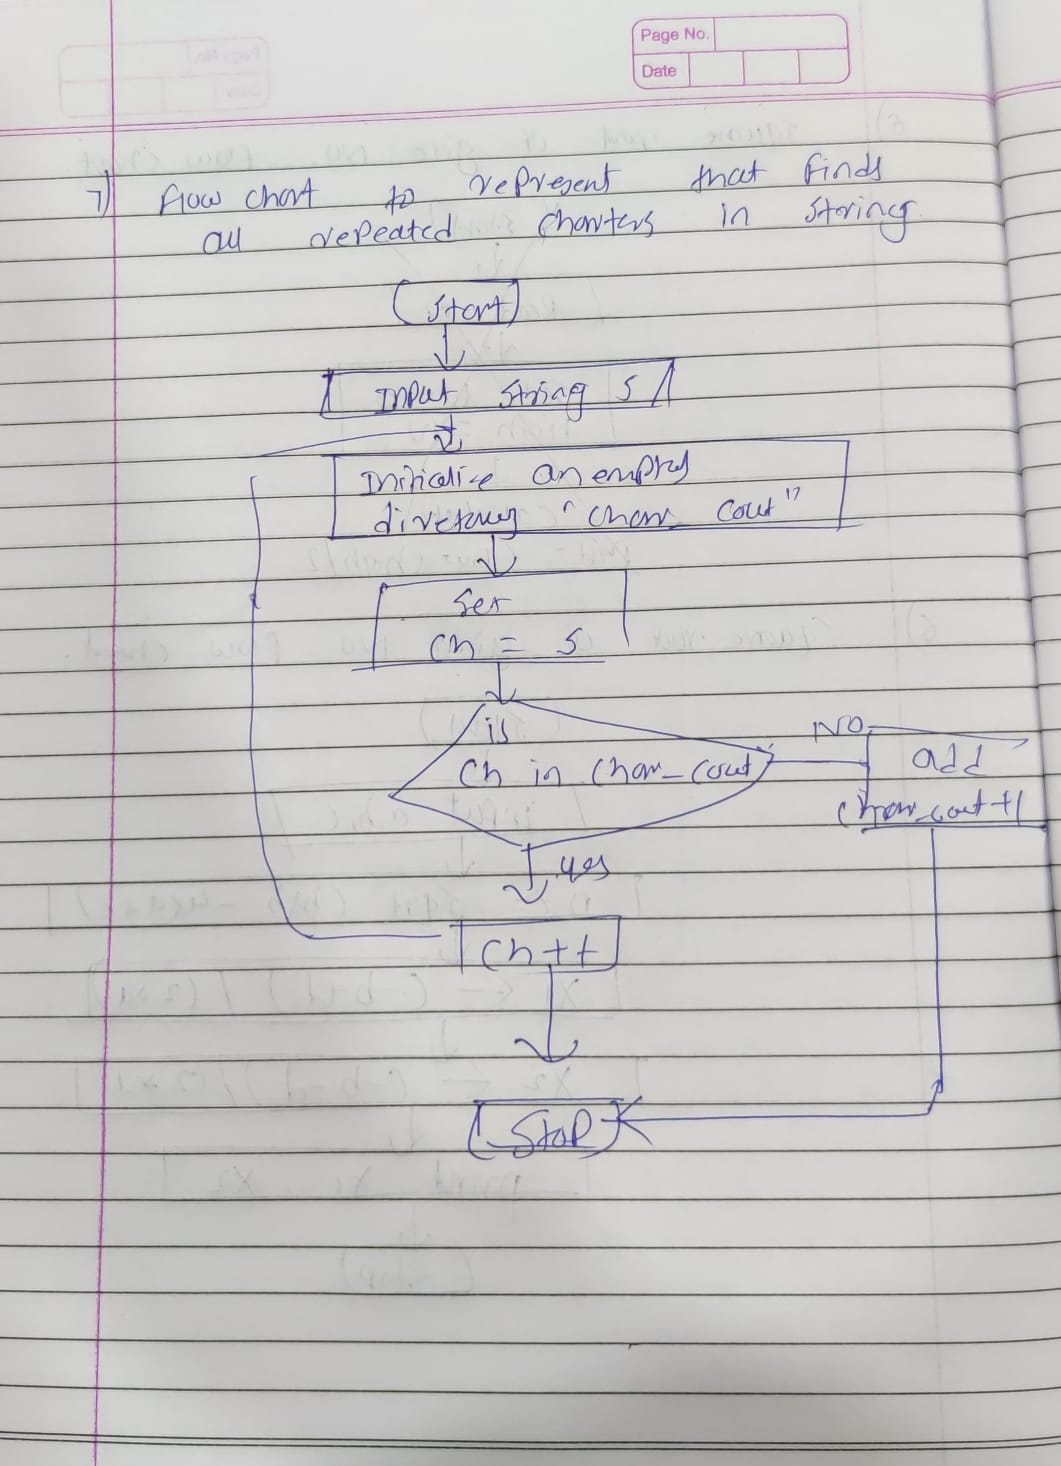 Page No.
Date
7) flow chart to represent that finds
all repeated charters in string
Start
Input string S
Initialize an empty
"char_cout"
Set
Ch = S
is
Ch in char_cout
NO
add
char_cout +1
yes
Ch++
Stop